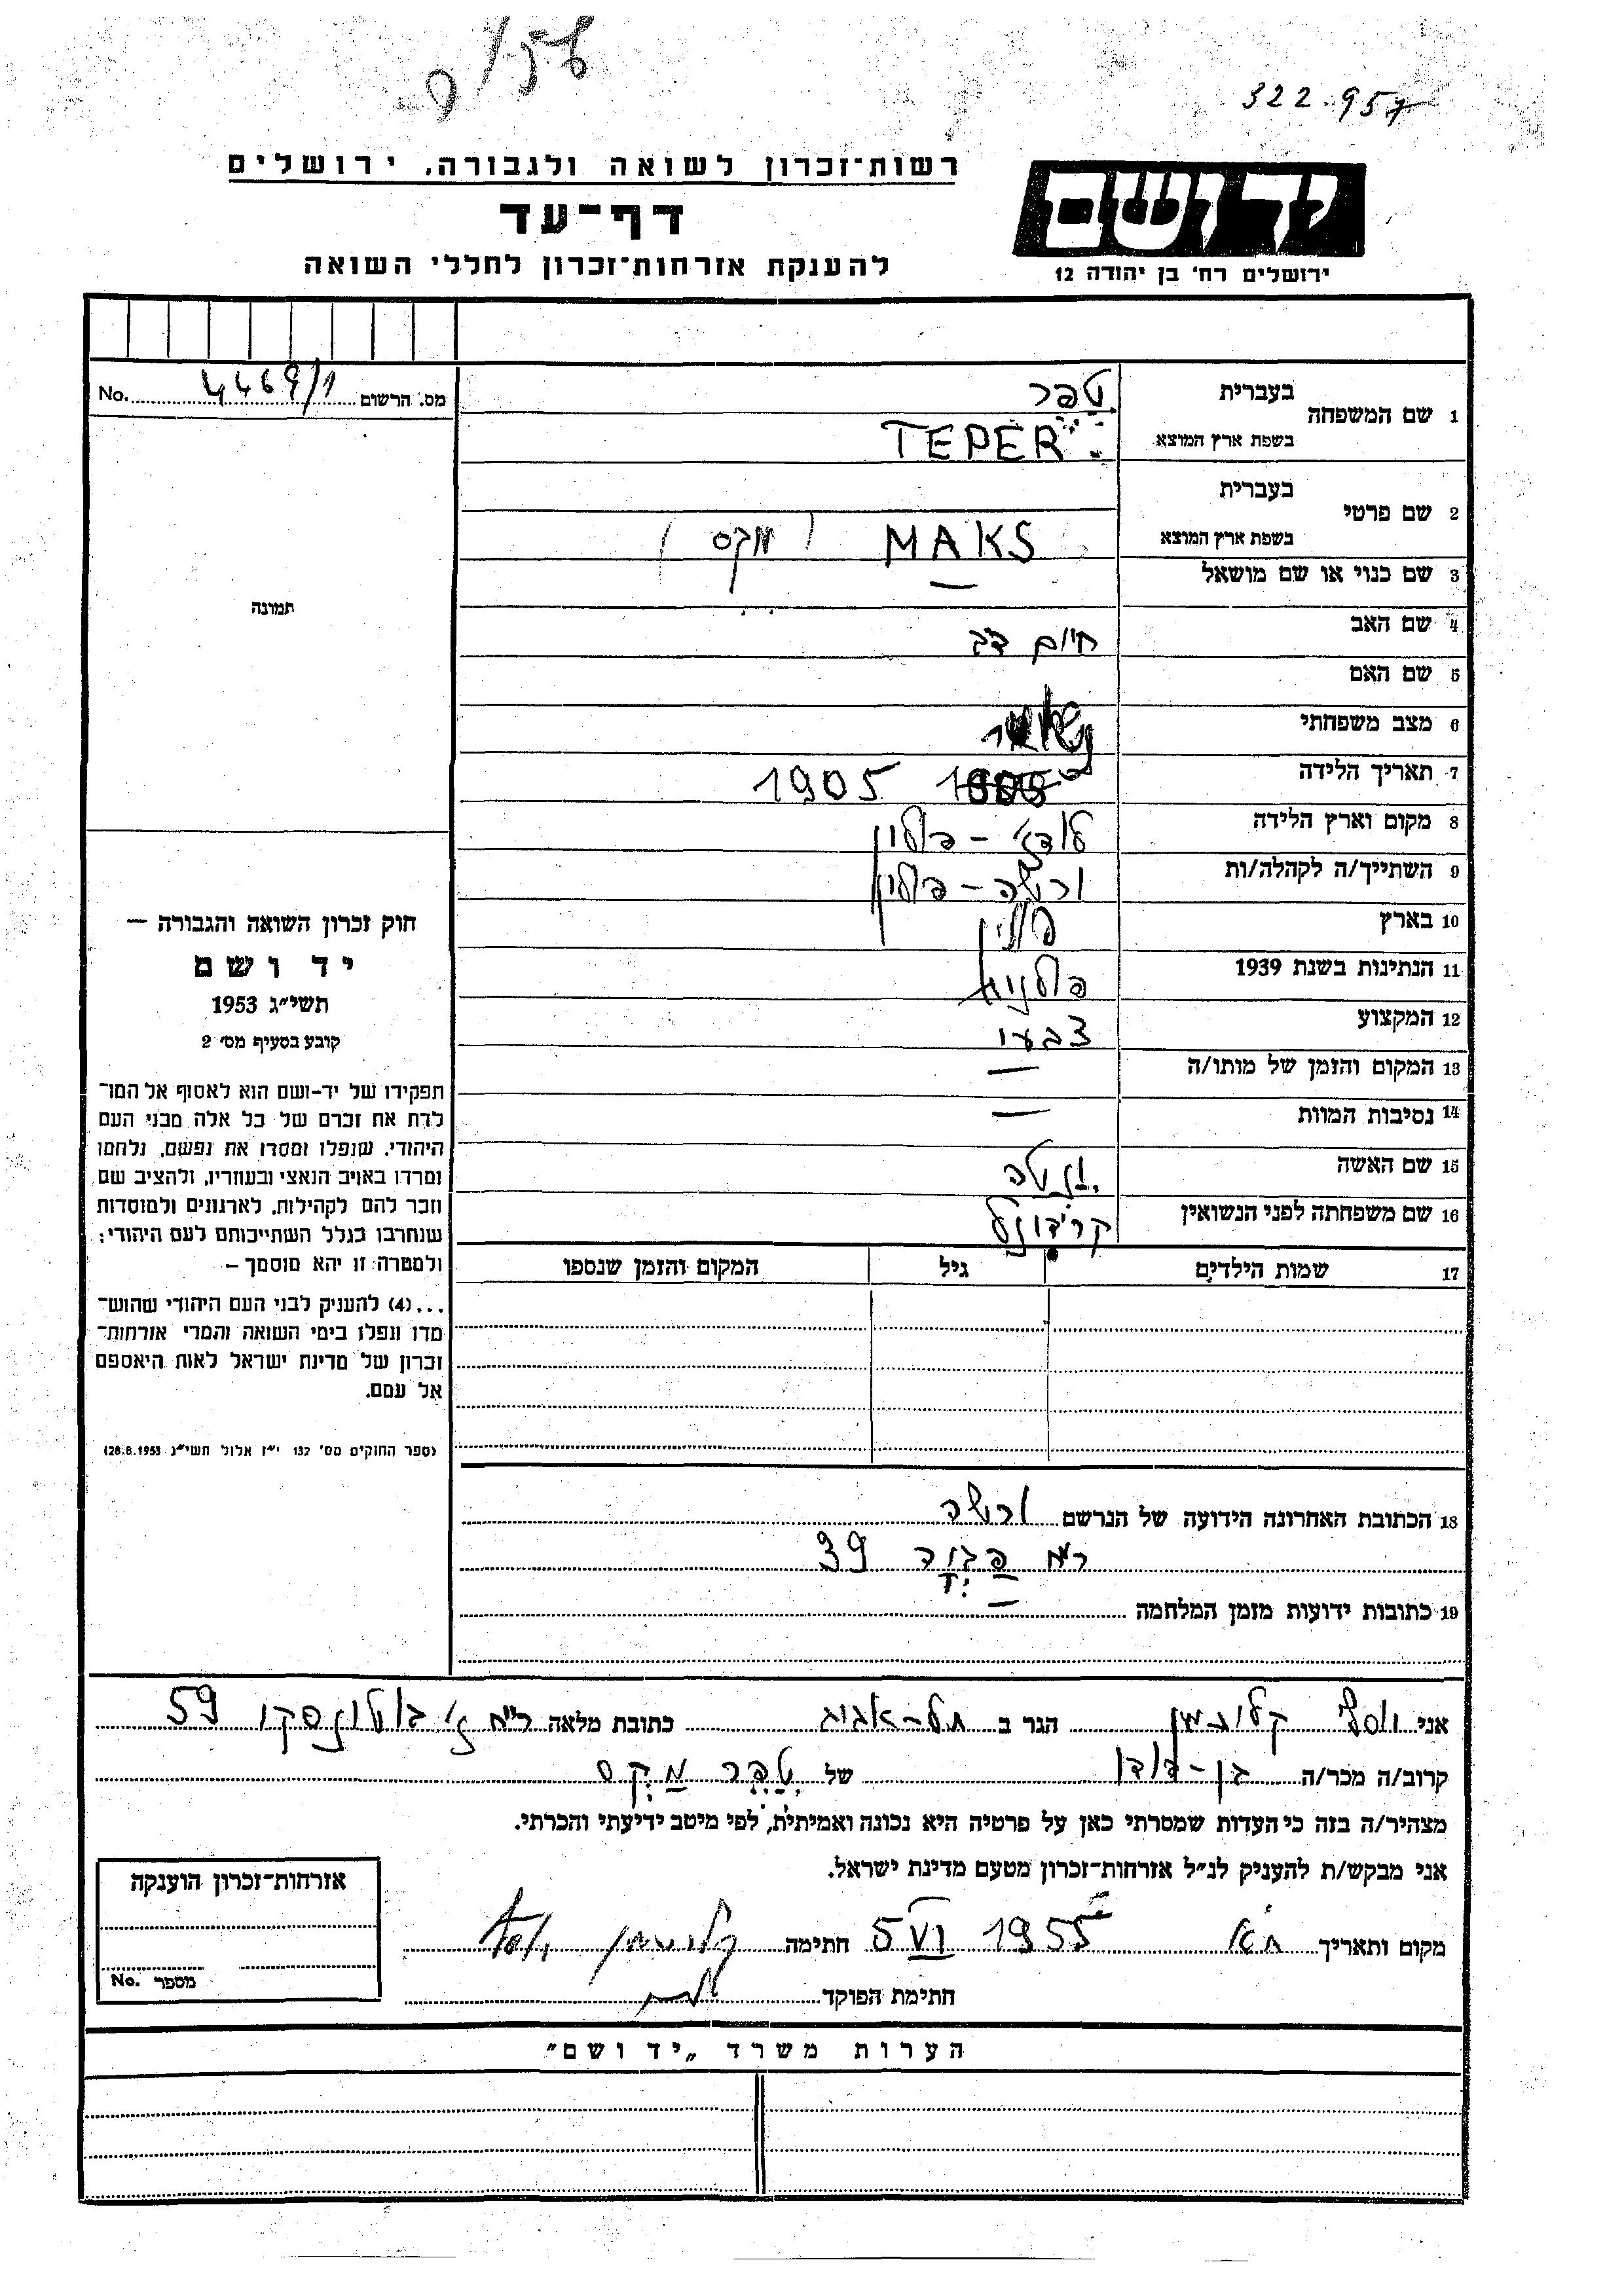 322.957
רשות־זכרון לשואה ולגבורה, ירושלים
דף־עד
להענקת אזרחות־זכרון לחללי השואה
יד ושם
ירושלים רח' בן יהודה 12
מס. הרשום 4469/1 No.
1 שם המשפחה בעברית טפר
בשפת ארץ המוצא TEPER
2 שם פרטי בעברית
בשפת ארץ המוצא MAKS (מקס)
3 שם כנוי או שם מושאל —
4 שם האב חיים דב
5 שם האם
6 מצב משפחתי נשוי
7 תאריך הלידה 1905
8 מקום וארץ הלידה לודז' - פולין
9 השתייך/ה לקהלה/ות ורשה - פולין
10 בארץ פולין
11 הנתינות בשנת 1939 פולנית
12 המקצוע צבעי
13 המקום והזמן של מותו/ה —
14 נסיבות המוות —
15 שם האשה
16 שם משפחתה לפני הנשואין
17 שמות הילדים גיל המקום והזמן שנספו
18 הכתובת האחרונה הידועה של הנרשם ורשה
רח 39
19 כתובות ידועות מזמן המלחמה —
תמונה
חוק זכרון השואה והגבורה —
יד ושם
תשי״ג 1953
קובע בסעיף מס׳ 2
תפקידו של יד-ושם הוא לאסוף אל המו־
לדת את זכרם של כל אלה מבני העם
היהודי, שנפלו ומסרו את נפשם, נלחמו
ומרדו באויב הנאצי ובעוזריו, ולהציב שם
וזכר להם לקהילות, לארגונים ולמוסדות
שנחרבו בגלל השתייכותם לעם היהודי;
ולמטרה זו יהא מוסמך —
...(4) להעניק לבני העם היהודי שהוש־
מדו ונפלו בימי השואה והמרי אזרחות־
זכרון של מדינת ישראל לאות היאספם
אל עמם.
(ספר החוקים מס׳ 132 י״ז אלול תשי״ג 28.8.1953)
אני יוסף הגר ב תל-אביב כתובת מלאה רח ז'בוטינסקי 59
קרוב/ה מכר/ה בן-דודו של טפר מקס
מצהיר/ה בזה כי העדות שמסרתי כאן על פרטיה היא נכונה ואמיתית, לפי מיטב ידיעתי והכרתי.
אני מבקש/ת להעניק לנ״ל אזרחות־זכרון מטעם מדינת ישראל.
מקום ותאריך ת"א 5 VI 1955 חתימה
חתימת הפוקד
אזרחות־זכרון הוענקה
מספר No.
הערות משרד „יד ושם״